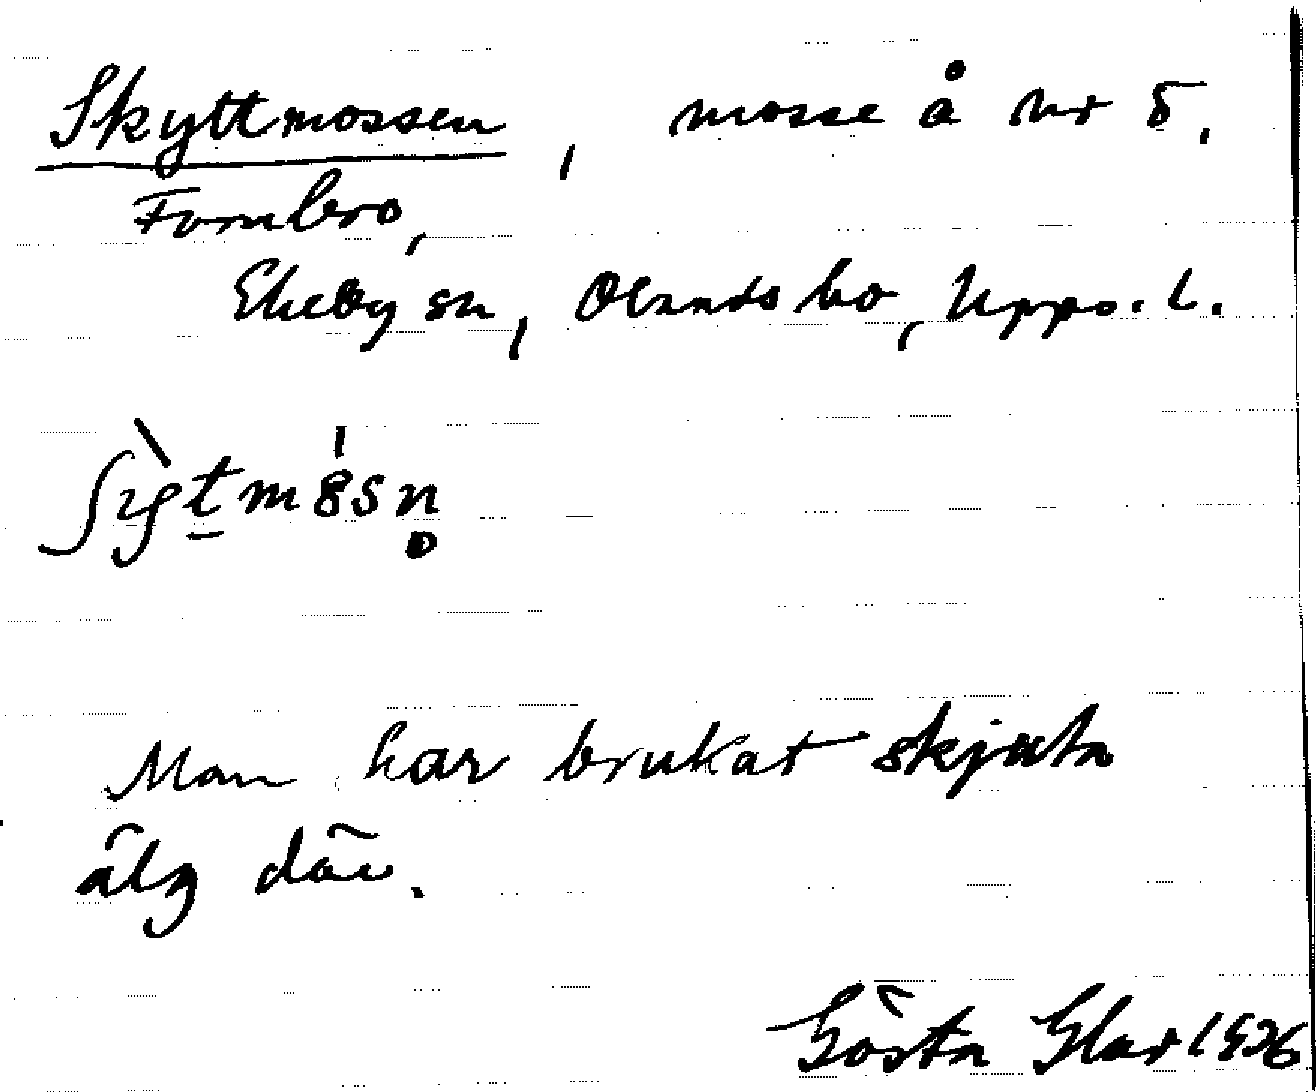 Skyttmossen, mosse å nr 5,
Fornbro,
Ekeby sn, Olands hd, Upps. l.
Man har brukat skjuta
älg där.
Gösta Glar 1936